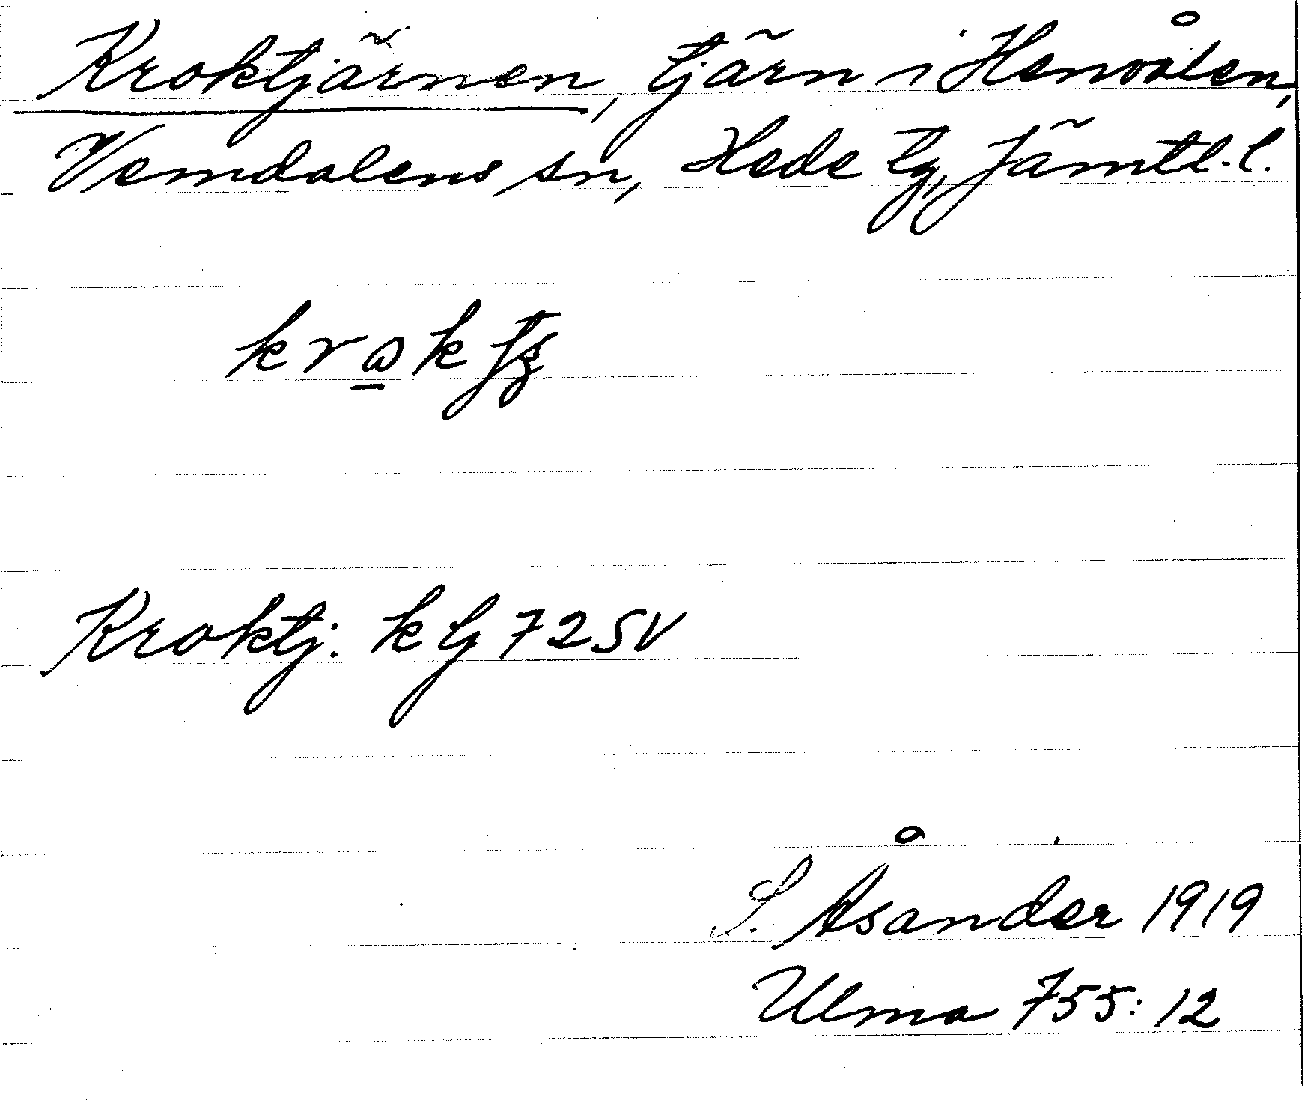 Kroktjärnen, tjärn i Henvålen,
Vemdalens sn, Hede tg, Jämtl. l.
Kroktj. k bj 72 SV
S. Åsander 1919
Ulma 755:12